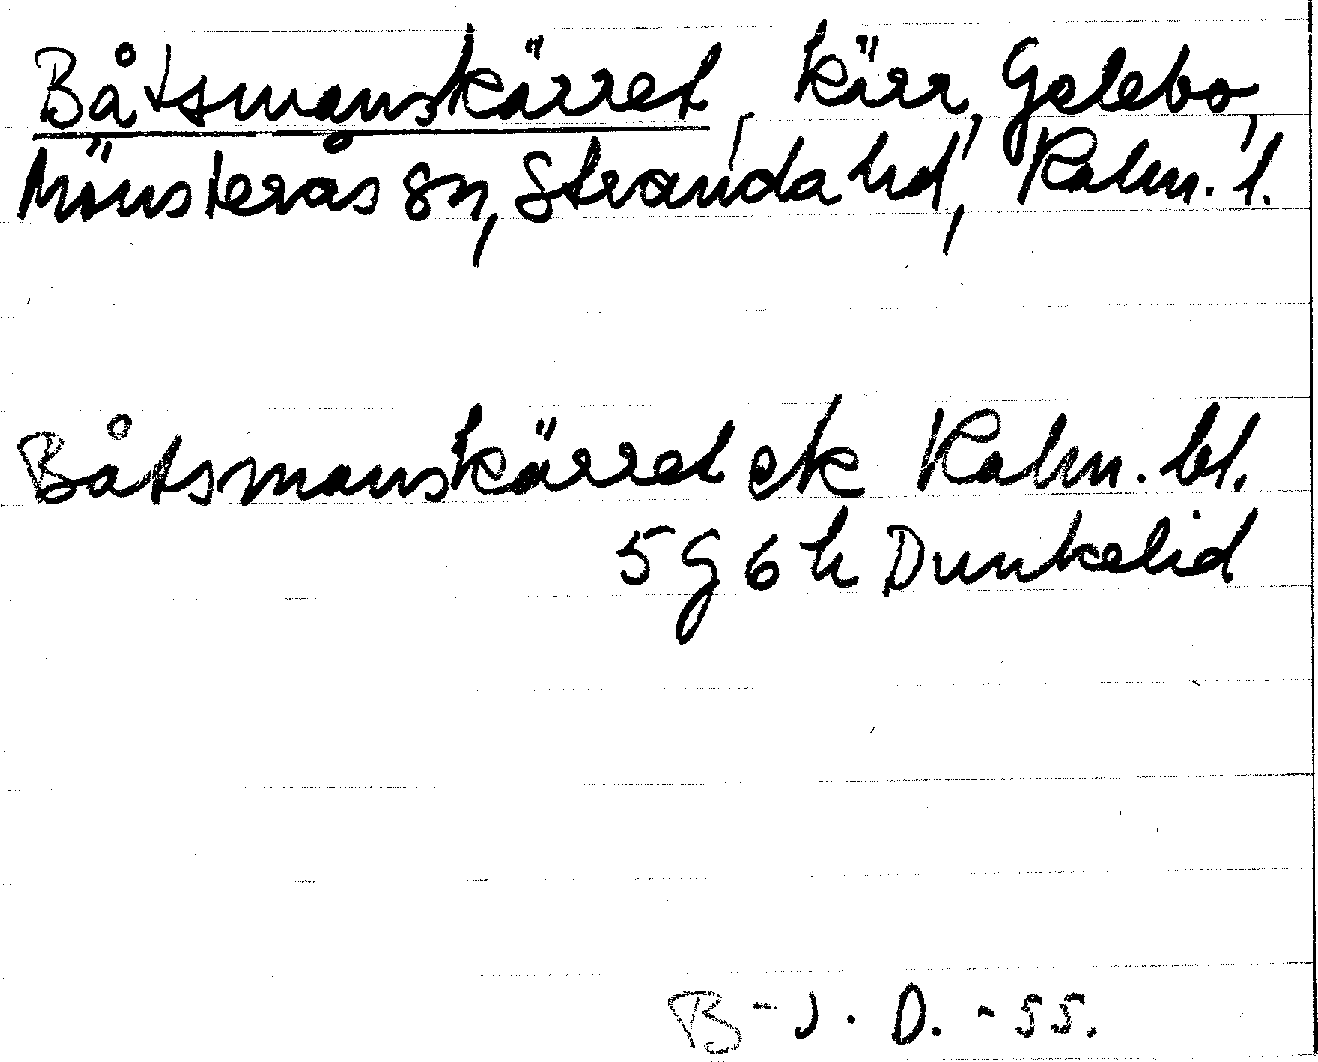 Båtsmanskärret, kärr, Gelebo,
Mönsterås sn, Stranda hd, Kalm. l.
Båtsmanskärret ek Kalm. bl.
5 G 6 h Dunkelid
B-J. D. -55.